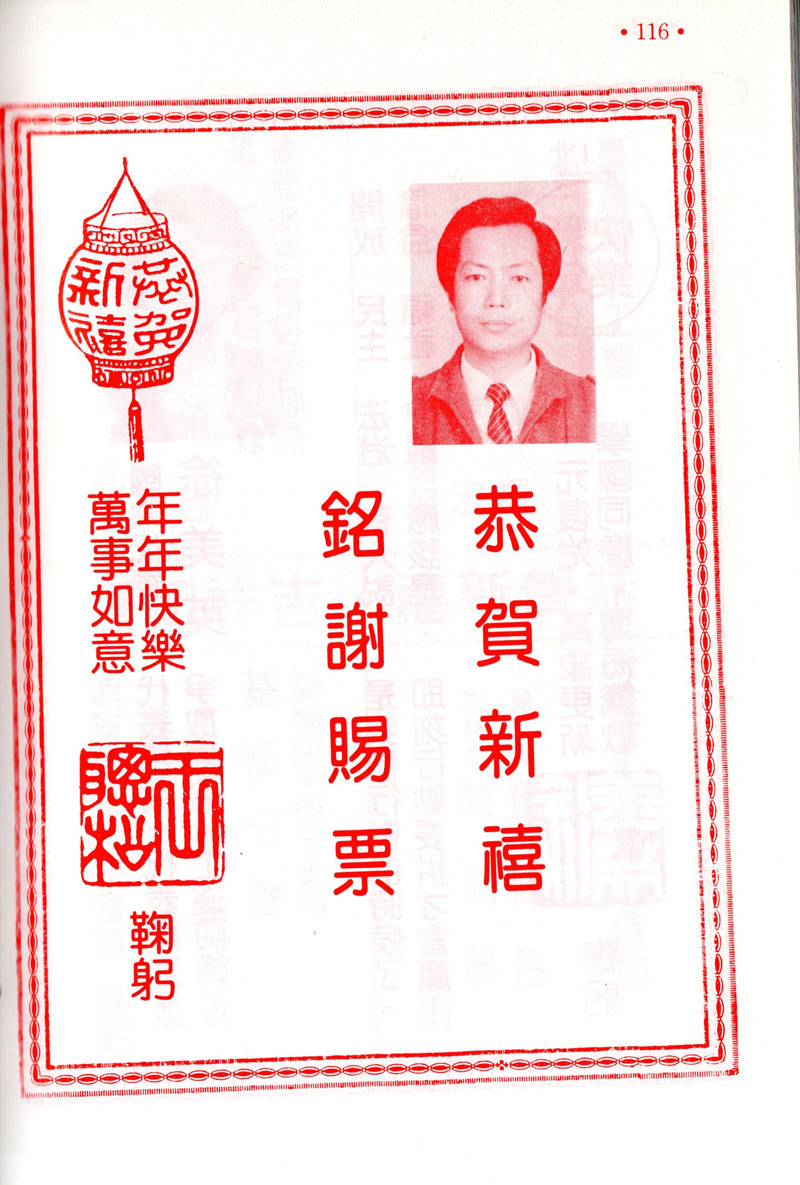 • 116 •
恭賀
新禧
恭賀新禧
銘謝賜票
年年快樂
萬事如意
聰松
鞠躬